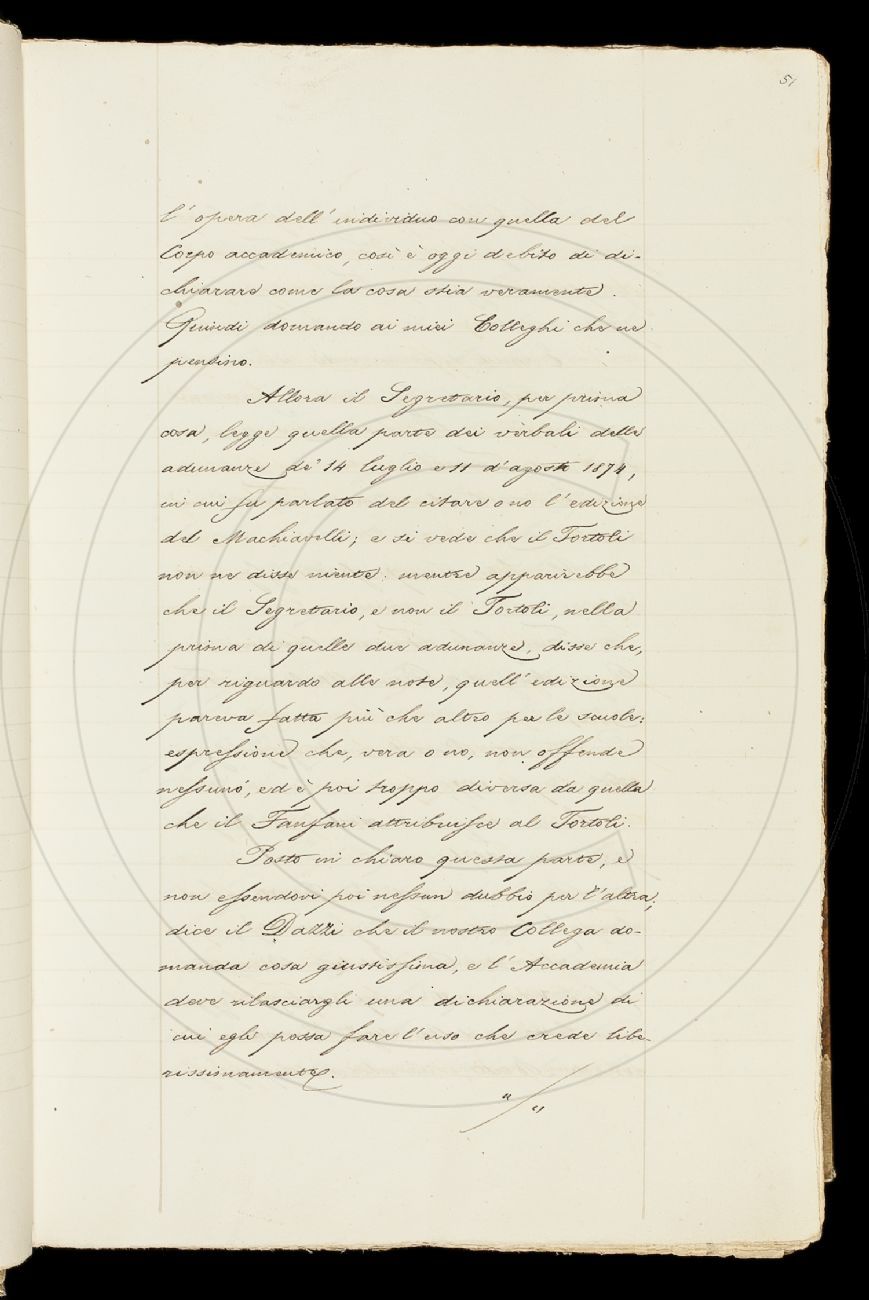 51
l' opera dell' individuo con quella del
Corpo accademico, così è oggi debito di di-
chiarare come la cosa stia veramente.
Quindi domando ai miei Colleghi che ne
pensino.
Allora il Segretario, per prima
cosa, legge quella parte dei verbali delle
adunanze de' 14 luglio e 11 d'agosto 1874,
in cui fu parlato del citare o no l' edizione
del Machiavelli; e si vede che il Tortoli
non ne disse niente: mentre apparirebbe
che il Segretario, e non il Tortoli, nella
prima di quelle due adunanze, disse che,
per riguardo alle note, quell' edizione
pareva fatta più che altro per le scuole:
espressione che, vera o no, non offende
nessuno, ed è poi troppo diversa da quella
che il Fanfani attribuisce al Tortoli.
Posto in chiaro questa parte, e
non essendovi poi nessun dubbio per l'altra,
dice il Dazzi che il nostro Collega do-
manda cosa giustissima, e l' Accademia
deve rilasciargli una dichiarazione di
cui egli possa fare l' uso che crede libe-
rissimamente.
"/"